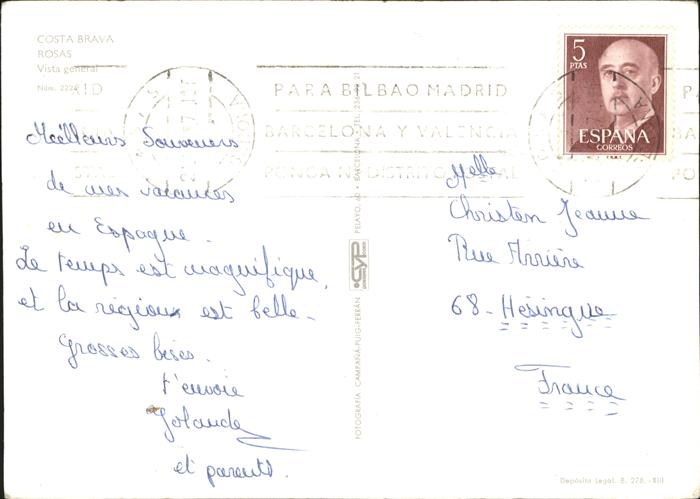 COSTA BRAVA
ROSAS
Vista general
Núm. 222
PARA BILBAO MADRID
BARCELONA Y VALENCIA
PONGA Nº DISTRITO POSTAL
5
PTAS
ESPAÑA
CORREOS
Meilleurs Souvenirs
de mes vacances
en Espagne.
Le temps est magnifique,
et la région est belle.
Grosses bises.
t'envoie
Yolande
et parents.
Melle
Christen Jeanne
Rue Arrière
68 - Hésingue
France
FOTOGRAFIA CAMPAÑA-PUIG-FERRÁN
CYP
PELAYO, 60 • BARCELONA
Depósito Legal. B. 278. -XIII